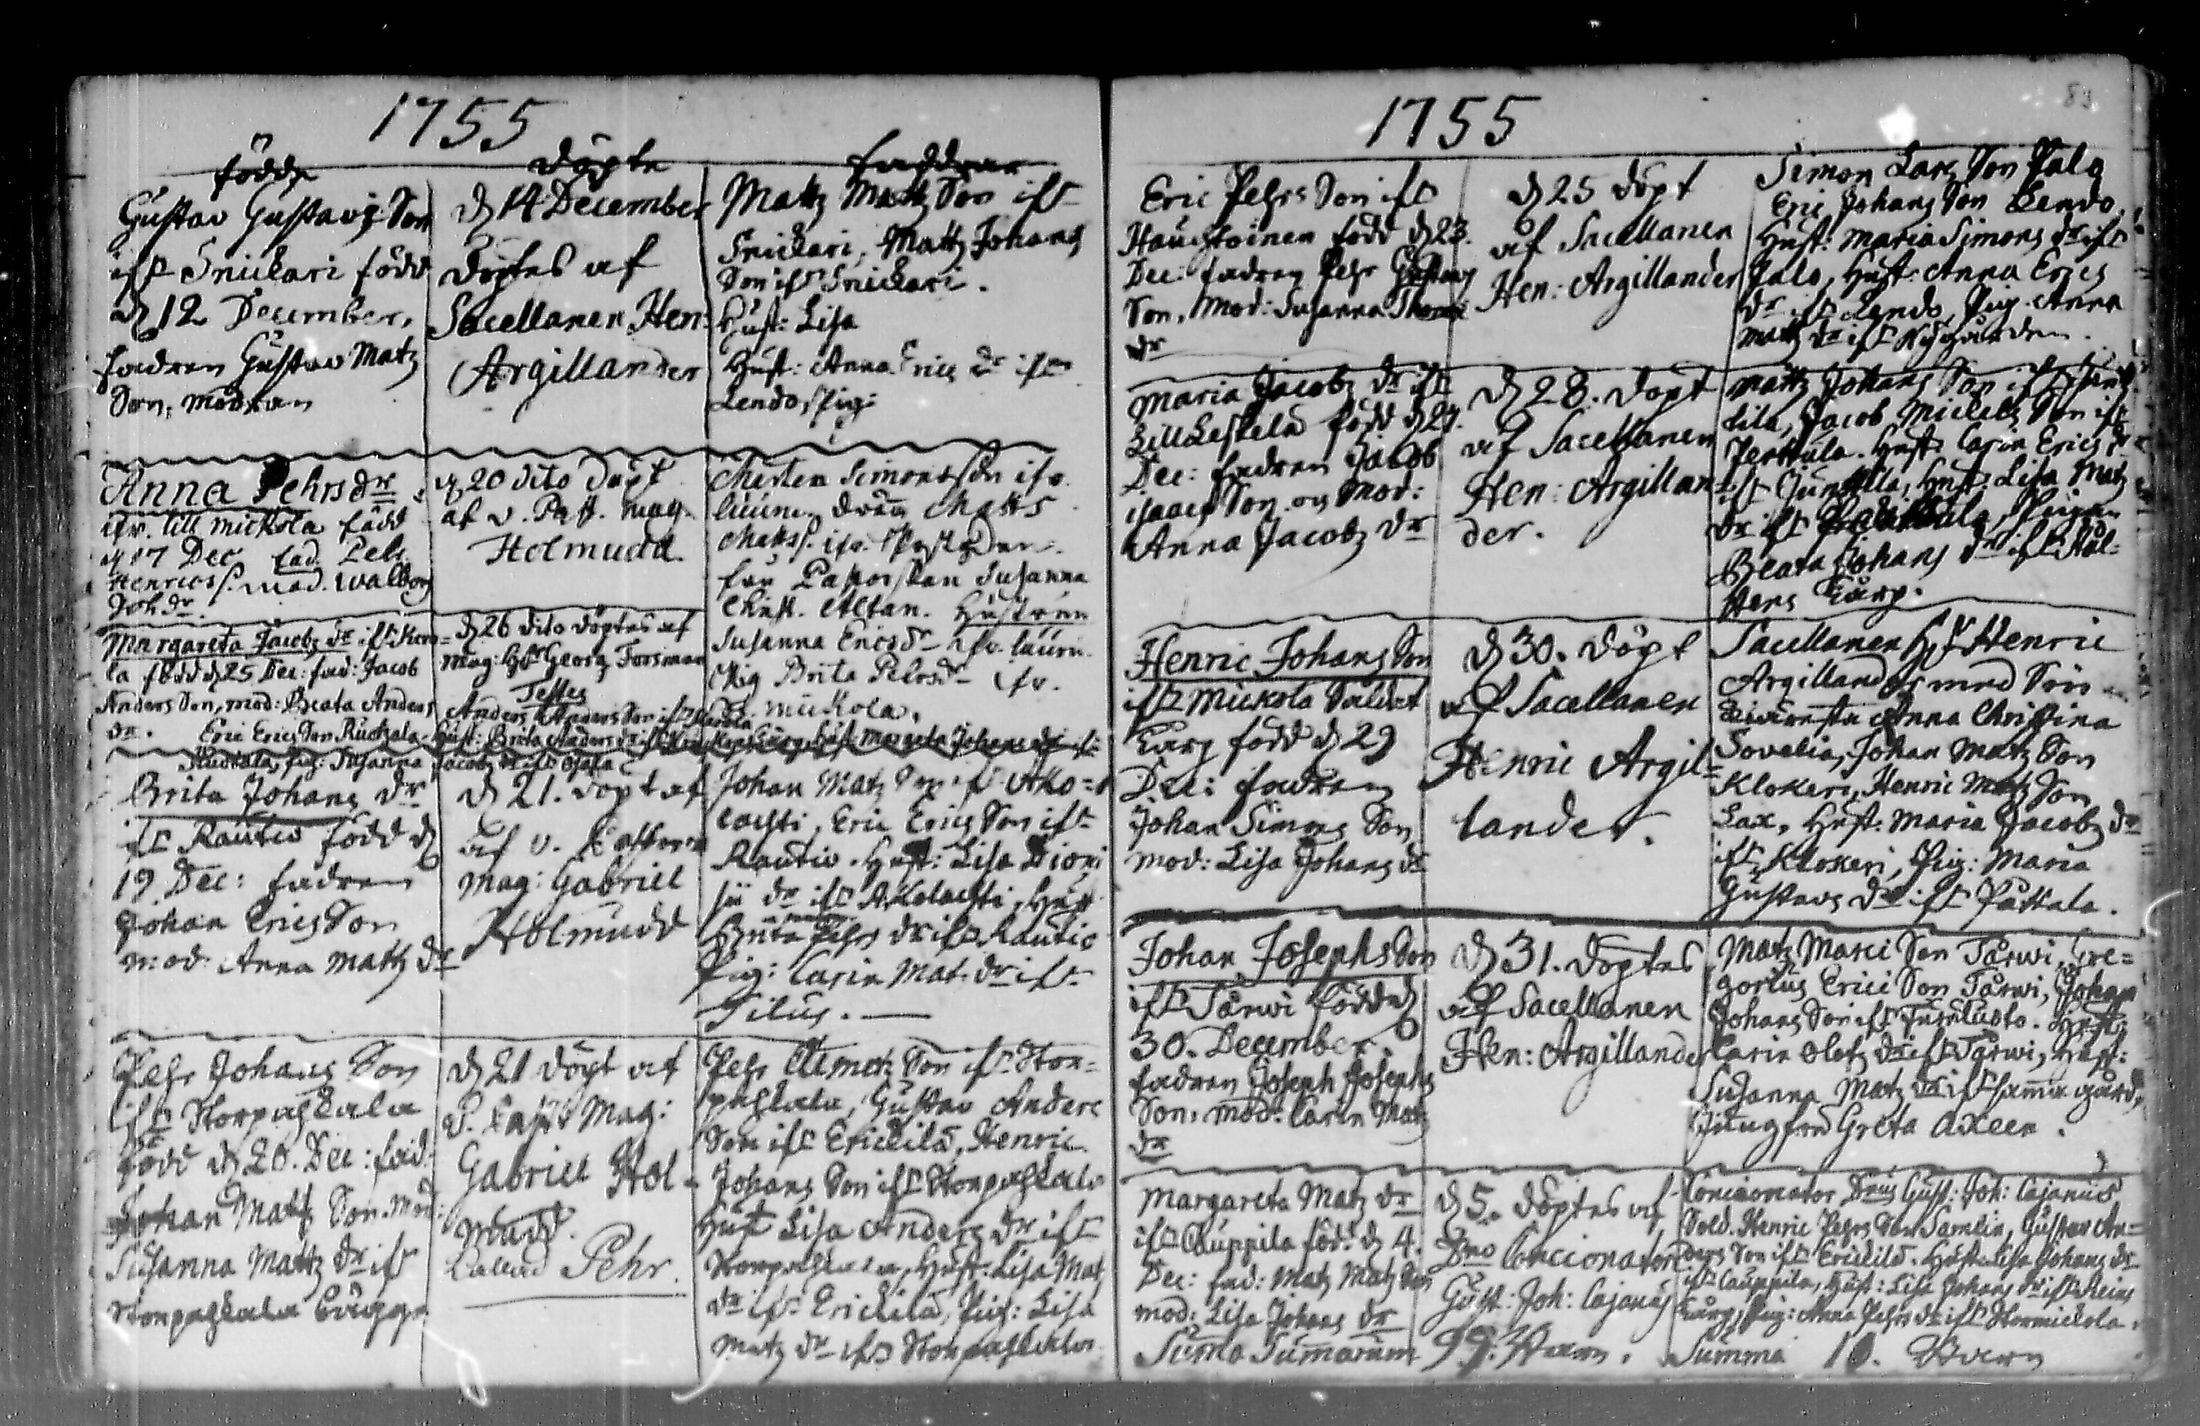 1755
födde
döpte
faddrar
Gustav Gustavs Son
ifr Snickari född
d 12 December,
fadren Gustav Matz
Son, modran
d 14 December
döptes af
Sacellanen Hen:
Argillander
Mattz Mattz Son ifr
Snickari, Mattz Johans
Son ifr Snickari.
Hust: Lisa
Hust: Anna Erics dr ifr
Lendo, Pig:
Anna Pehrsdr
ifr. lill mickola född
d 17 Dec fad. Pehr
Henricss. mod. Walborg
Joh dr.
d 20 dito döpt
af v. Past. mag.
Holmudd.
Mårten Simonsson ifr.
luuni, dräng Matts
Matss. ifr.
fru Susanna
Christ. Altan. Hustrun
Susanna Ericsdr ifr. luuni.
Pig Brita Pehrsdr ifr.
mickola.
Margareta Jacobs dr ifr Karo=
la född d 25 Dec: fad: Jacob
Anders Son, mod: Beata Anders
dr.
d 26 dito döptes af
Mag: Hr Georg Forsman
Testes
Anders Anders Son ifr Karola
Eric Erics Son Ruckala, Hust: Brita Anders dr
Ruckala, Pig: Susanna Jacobs dr ifr
Brita Johans dr
ifr Rautio född d
19 Dec: fadren
Johan Erics Son
mod: Anna Mattz dr
d 21. döpt af
af v. Pastoren
Mag: Gabriel
Holmudd
Johan Matz Son ifr Ako=
lachti, Eric Erics Son ifr
Rautio. Hust: Lisa Dioni
sii dr ifr Akolachti, Hust
Brita Pehrs dr ifr Rautio
Pig: Carin Mat. dr ifr
Silus.
Pehr Johans Son
ifr Storpaskala
född d 20. Dec: fad:
Johan Mattz Son. Mod:
Susanna Mattz dr ifr
Storpaskala
d 21 döpt af
v. Past Mag:
Gabriel Hol=
mudd.
kallad Pehr.
Pehr Clemetz Son ifr Stor=
paskala, Gustav Anders
Son ifr Erickilä, Henric
Johans Son ifr Storpaskala
Hust Lisa Anders dr ifr
Storpaskala, Hust: Lisa Matz
dr ifr Erickilä, Pig: Lisa
Matz dr ifr Storpaskala
1755
83
Eric Pehrs Son ifr
Haugtoinen född d 23.
Dec: fadren Pehr Gustavs
Son, Mod: Susanna Thomæ
dr
d 25 döpt
af Sacellanen
Hen: Argillander
Simon Lars Son Palo
Eric Johans Son Lendo,
Hust: Maria Simons dr ifr
Palo, Hust: Anna Erics
dr ifr Lendo, Pig: Anna
Mattz dr ifr Nygården.
Maria Jacobs dr ifr
Lill Leskelä född d 27.
Dec: fadren Jacob
Isaacs Son og Mod:
Anna Jacobs dr
d 28. döpt
af Sacellanen
Hen: Argillan
der.
Mattz Johans Son ifr
lila, Jacob Mickels Son ifr
Perttula. Hust: Carin Erics dr
ifr Hust: Lisa Matz
dr ifr Pigan
Beata Johans dr ifr
stens
Henric Johans Son
ifr Mickola Soldat
Torp född d 29
Dec: fadren
Johan Simons Son
mod: Lisa Johans dr
d 30. döpt
af Sacellanen
Henric Argil=
lander.
Sacellanen Hr Henric
Argillander med sin
käraste Anna Christina
Sovelia, Johan Matz Son
Klokeri, Henric Matz Son
Lax, Hust: Maria Jacobs dr
ifr Klokeri, Pig: Maria
Gustavs dr ifr Pattala.
Johan Josephs Son
ifr Tärwi född d
30. December.
fadren Joseph Josephs
Son, mod: Carin Matz
dr
d 31. döptes
af Sacellanen
Hen: Argillander
Matz Marci Son Tärwi, Gre=
gorius Erici Son Tärwi, Johan
Johans Son ifr Hust:
Carin Olofs dr ifr Tärwi, Hust:
Susanna Matz dr ifr gård,
Jungfru Greta Axeen.
Margareta Matz dr
ifr Cauppila född d 4.
Dec: fad: Matz Matz Son
mod: Lisa Johans dr
d 5. döptes af
Dno Concionatore
Gust: Joh: Cajanus
Concionator Dnus Gust: Joh: Cajanus
Sold. Henric Pehrs Son Samlin, Gustav An=
ders Son ifr Erickilä. Hust: Lisa Johans dr
ifr Cauppila, Hust: Lisa Johans dr ifr Reins
Torp, Pig: Anna Pehrs dr ifr Stormickola.
Suma Sumarum 99. Barn.
Summa 10. Barn